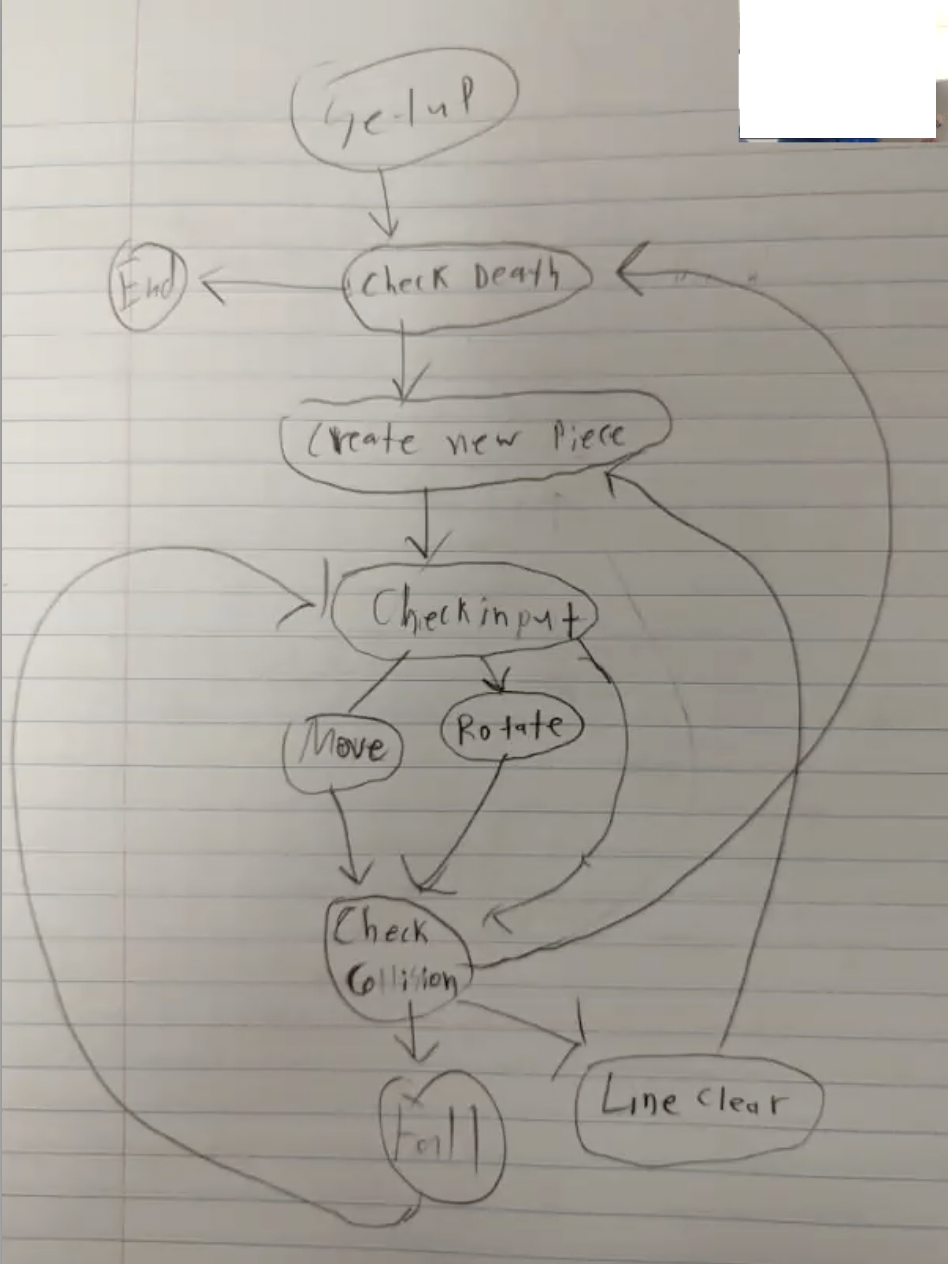 Setup
End
Check Death
Create new Piece
Check input
Move
Rotate
Check
Collision
Fall
Line Clear